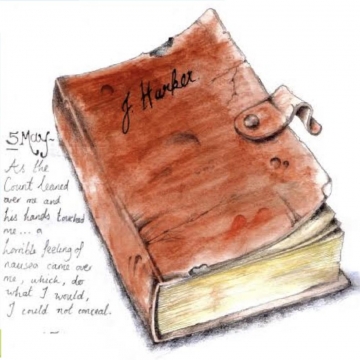 J Harker
5 May
As the
Count leaned
over me and
his hands touched
me... a
horrible feeling of
nausea came over
me, which, do
what I would,
I could not conceal.